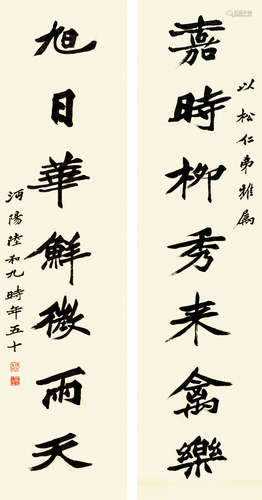 以松仁弟雅属
嘉時柳秀来禽樂
旭日華鮮微雨天
沔陽陸和九時年五十